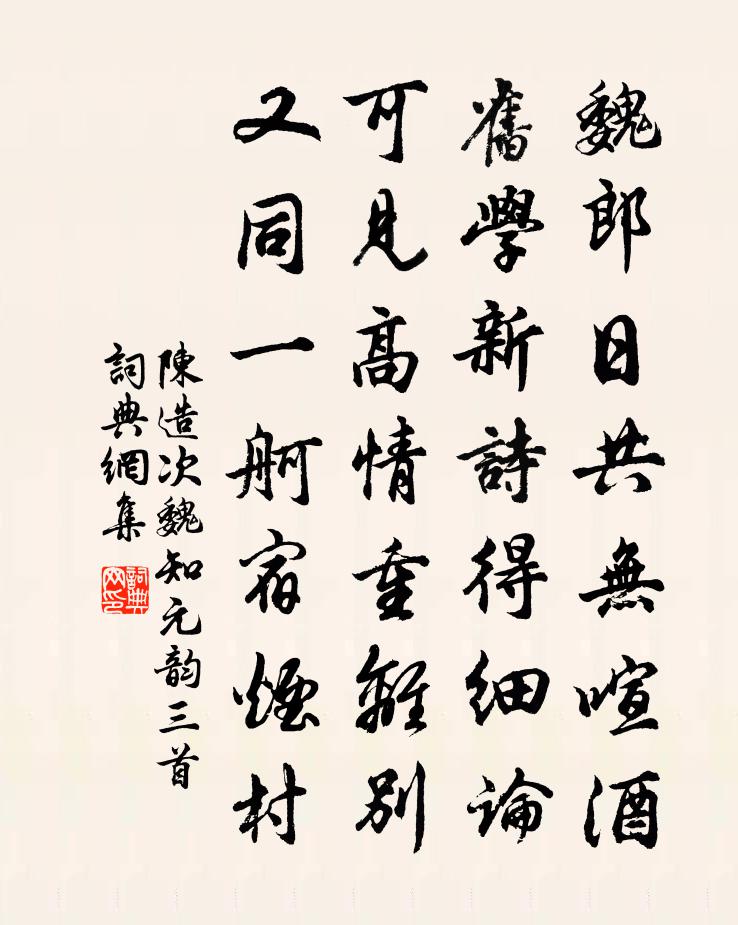 魏郎日共無喧酒
舊學新詩得細論
可見高情重離別
又同一舸宿煙村
陳造次魏知元韵三首
詞典網集
詞典網印